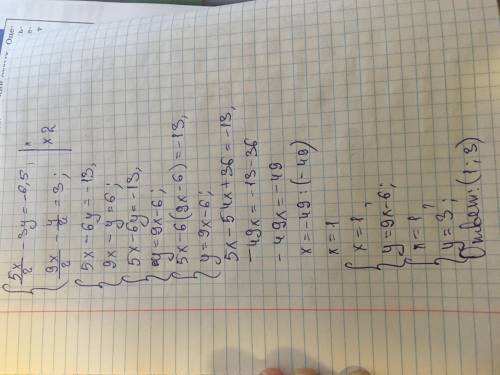 { 5x/2 - 3y = -6,5, | ×2
{ 9x/2 - y/2 = 3; | ×2
{ 5x - 6y = -13,
{ 9x - y = 6;
{ 5x - 6y = -13,
{ y = 9x - 6;
{ 5x - 6(9x - 6) = -13,
{ y = 9x - 6;
5x - 54x + 36 = -13,
-49x = -13 - 36
-49x = -49
x = -49 : (-49)
x = 1
{ x = 1,
{ y = 9x - 6;
{ x = 1,
{ y = 3;
Ответ: (1; 3)